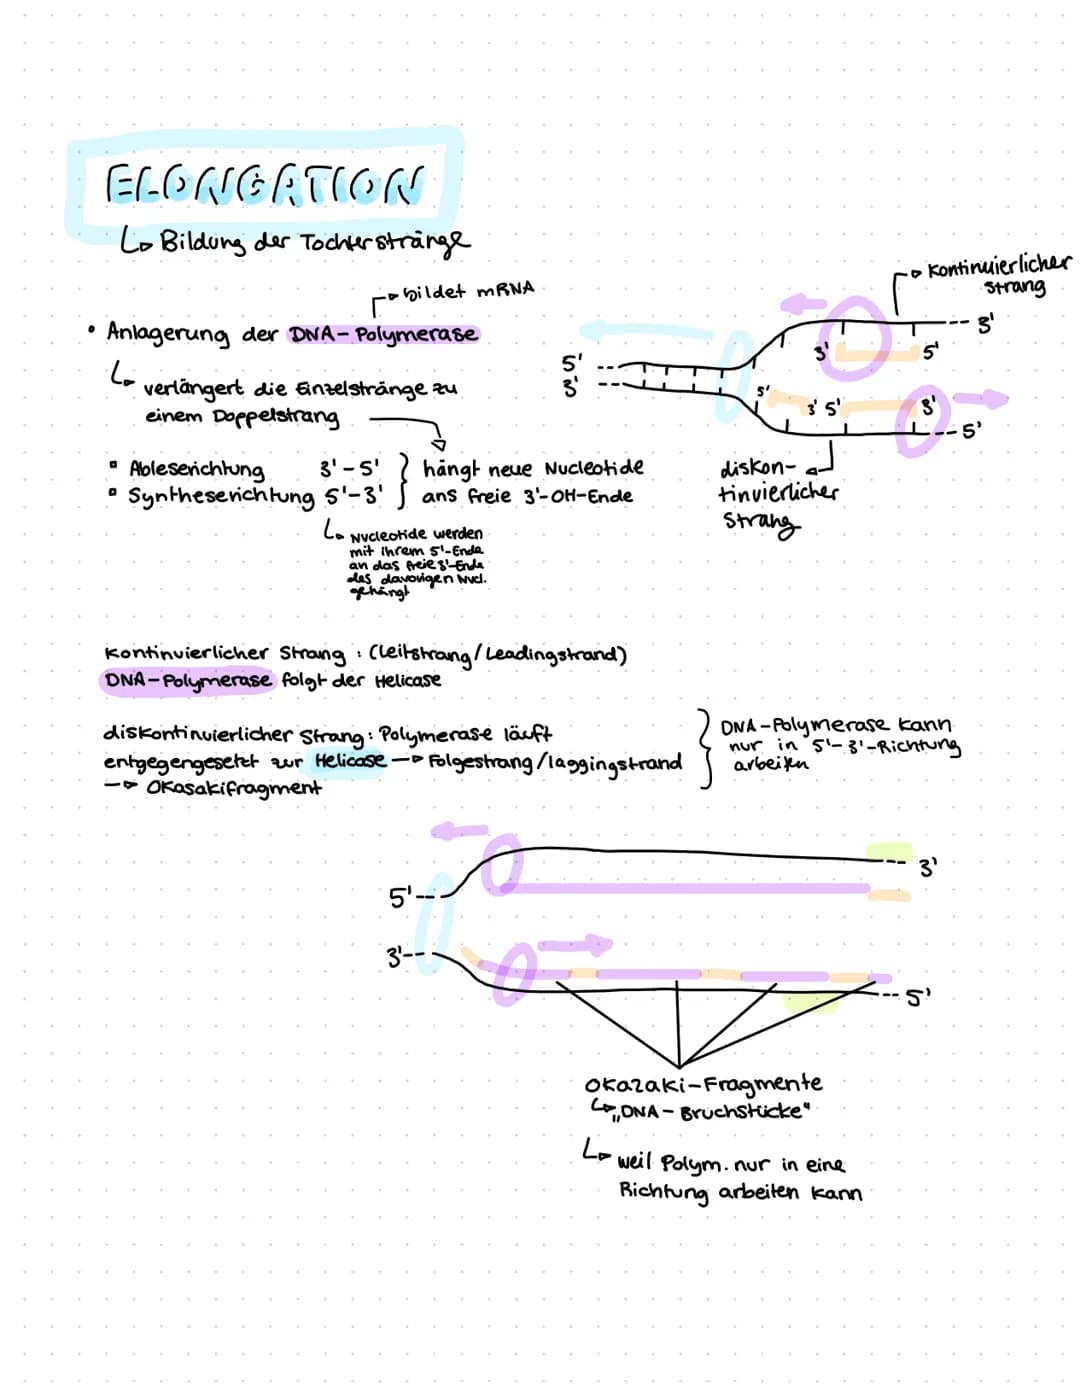 ELONGATION
Bildung der Tochterstränge
bildet mRNA
• Anlagerung der DNA-Polymerase
verlängert die Einzelstränge zu
einem Doppelstrang
Ableserichtung 3'-5'
Syntheserichtung 5'-3'
hängt neue Nucleotide
ans freie 3'-OH-Ende
Nucleotide werden
mit ihrem 5'-Ende
an das freie 3'-Ende
des davorigen Nucl.
gehängt
kontinuierlicher
strang
3'
3' 5'
5'
3'
5'
3' 5' 3'
5'
diskon-
tinuierlicher
Strang
kontinuierlicher Strang : (Leitstrang/Leadingstrand)
DNA-Polymerase folgt der Helicase
diskontinuierlicher Strang: Polymerase läuft
entgegengesetzt zur Helicase → Folgestrang/laggingstrand
→ Okasakifragment
DNA-Polymerase kann
nur in 5'-3'-Richtung
arbeiten
3'
5'
3'
5'
Okazaki-Fragmente
„DNA-Bruchstücke"
weil Polym. nur in eine
Richtung arbeiten kann